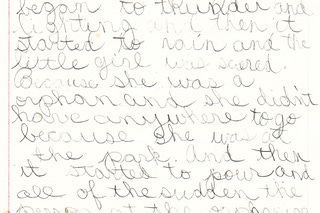 began to thunder and
lighting and then it
started to rain and the
little girl was scared.
Because she was a
orphan and she didn't
have anywhere to go
because she was at
the park. And then
it started to pour and
all of the sudden the
person at the orphane